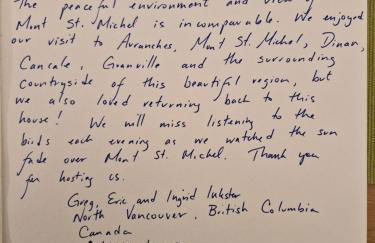 The peaceful environment and view of
Mont St. Michel is incomparable. We enjoyed
our visit to Avranches, Mont St. Michel, Dinan,
Cancale, Granville and the surrounding
countryside of this beautiful region, but
we also loved returning back to this
house! We will miss listening to the
birds each evening as we watched the sun
fade over Mont St. Michel. Thank you
for hosting us.
Greg, Eric and Ingrid Inkster
North Vancouver, British Columbia
Canada